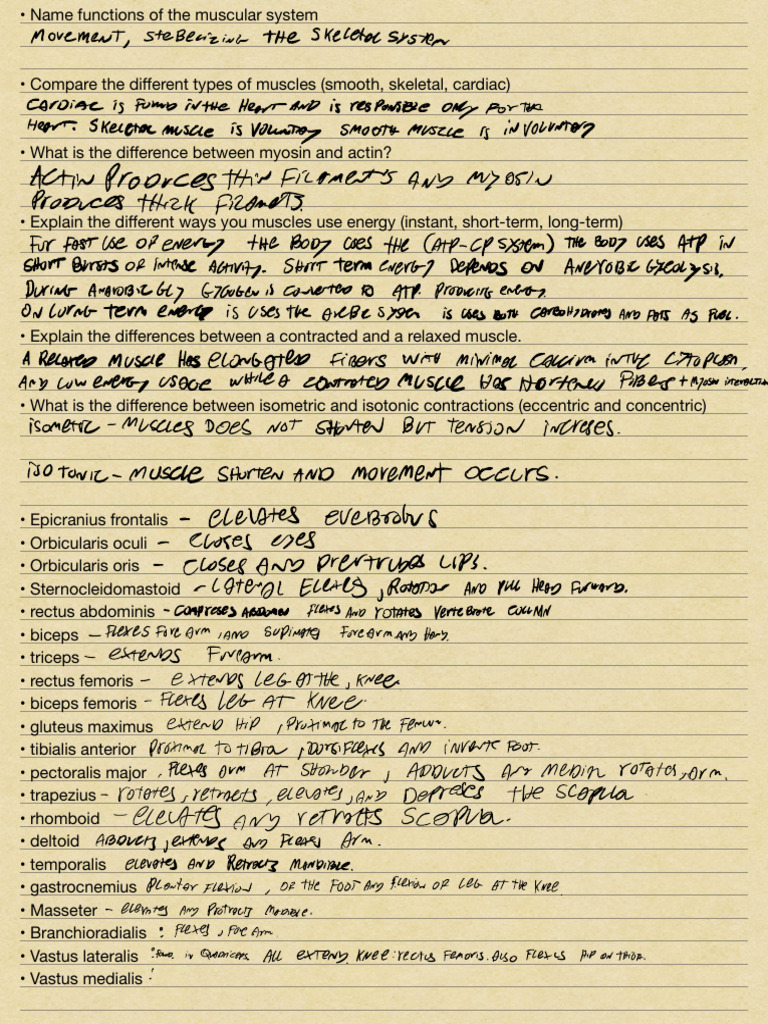 • Name functions of the muscular system
MOVEMENT, STEBELIZING THE SKELETAL SYSTEM
• Compare the different types of muscles (smooth, skeletal, cardiac)
CARDIAC IS FOUND IN THE HEART AND IS RESPONSIBLE ONLY FOR THE
HEART. SKELETAL MUSCLE IS VOLUNTARY SMOOTH MUSCLE IS INVOLUNTARY
• What is the difference between myosin and actin?
ACTIN PRODUCES THIN FILAMENTS AND MYOSIN
PRODUCES THICK FILAMETS.
• Explain the different ways you muscles use energy (instant, short-term, long-term)
FUR FAST USE OF ENERGY THE BODY USES THE (ATP-CP SYSTEM) THE BODY USES ATP IN
SHORT BURSTS OF INTENSE ACTIVITY. SHORT TERM ENERGY DEPENDS ON ANEROBIC GYCOLYSIS.
DURING ANAROBIC GLY GYCOGEN IS CONVERTED TO ATP PRODUCING ENERGY.
ON LONG TERM ENERGY IS USES THE SYSTEM IS USES BOTH CARBOHYDRATES AND FATS AS FUEL.
• Explain the differences between a contracted and a relaxed muscle.
A RELAXED MUSCLE HAS ELONGATED FIBERS WITH MINIMAL CALCIUM IN THE CYTOPLASM,
AND LOW ENERGY USAGE WHILE A CONTRACTED MUSCLE HAS SHORTENED FIBERS + MYOSIN INTERACTION
• What is the difference between isometric and isotonic contractions (eccentric and concentric)
ISOMETRIC - MUSCLES DOES NOT SHORTEN BUT TENSION INCRESES.
ISOTONIC - MUSCLE SHORTEN AND MOVEMENT OCCURS.
• Epicranius frontalis - ELEVATES EYEBROWS
• Orbicularis oculi - CLOSES EYES
• Orbicularis oris - CLOSES AND PROTRUDES LIPS.
• Sternocleidomastoid - LATERAL FLEXES, ROTATION AND PULL HEAD FORWARD.
• rectus abdominis - COMPRESES ABDOMEN FLEXES AND ROTATES VERTEBRATE COLUMN
• biceps - FLEXES FORE ARM, AND SUPINATES FOREARM AND HAND.
• triceps - EXTENDS FOREARM.
• rectus femoris - EXTENDS LEG AT THE, KNEE
• biceps femoris - FLEXES LEG AT KNEE
• gluteus maximus EXTEND HIP, PROXIMAL TO THE FEMUR.
• tibialis anterior PROXIMAL TO TIBIA, DORSIFLEXES AND INVERTE FOOT.
• pectoralis major, FLEXES ARM AT SHOULDER, ADDUCTS AND MEDIAL ROTATES, ARM.
• trapezius - ROTATES, RETRACTS, ELEVATES, AND DEPRESES THE SCAPULA
• rhomboid - ELEVATES AND RETRACTS SCAPULA.
• deltoid ABDUCTS, EXTENDS AND FLEXES ARM.
• temporalis ELEVATES AND RETRACTS MANDIBLE.
• gastrocnemius PLANTAR FLEXION, OF THE FOOT AND FLEXION OF LEG AT THE KNEE
• Masseter - ELEVATES AND PROTRACTS MANDIBLE.
• Branchioradialis : FLEXES, FOREARM
• Vastus lateralis : IN QUADRICEPS ALL EXTEND KNEE: RECTUS FEMORIS. ALSO FLEXES HIP ON THIGH.
• Vastus medialis :